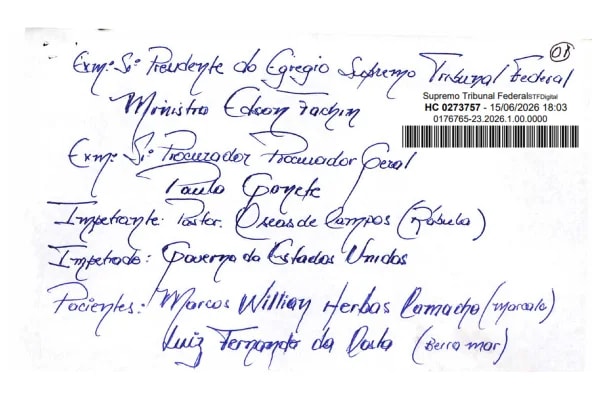 01
Exmº Srº Presidente do Egregio Supremo Tribunal Federal
Supremo Tribunal FederalSTFDigital
HC 0273757 - 15/06/2026 18:03
0176765-23.2026.1.00.0000
Ministro Edson Fachin
Exmº Srº Procurador Procurador Geral
Paulo Gonete
Impetrante: Pastor. Oseas de Campos (Rábula)
Impetrado: Governo do Estados Unidos
Pacientes: Marcos Willian Herbas Camacho (marcola)
Luiz Fernando da Costa (Beira mar)